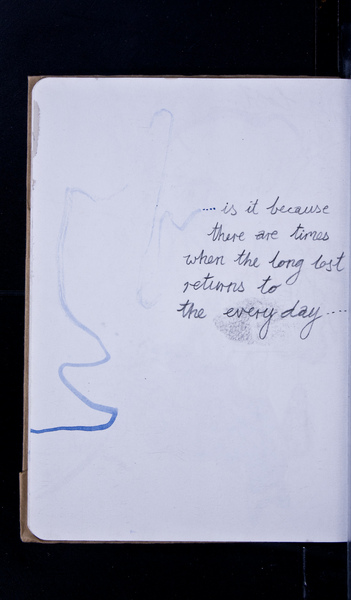 .... is it because
there are times
when the long lost
returns to
the every day ....